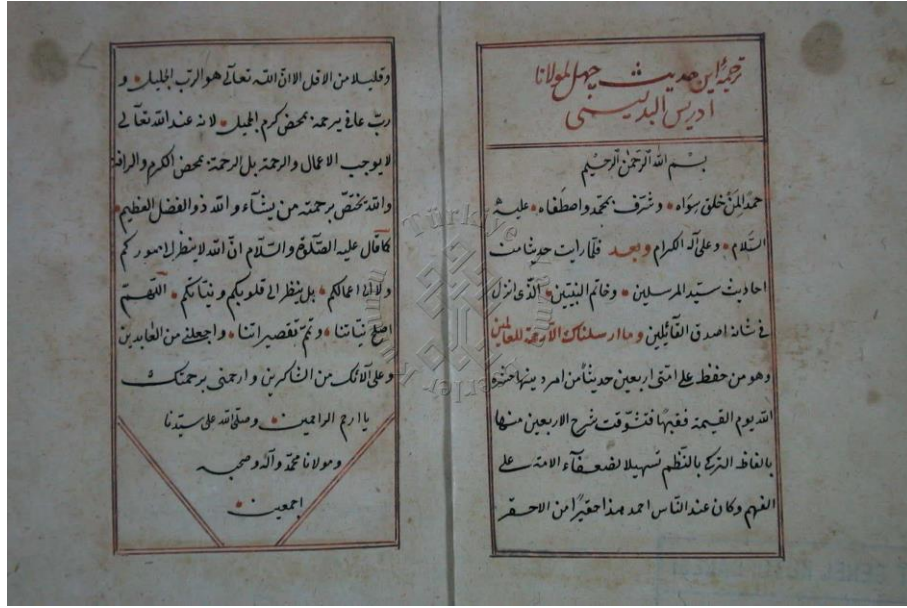 ترجمۀ این حدیث چهل لمولانا
ادریس البدلیسی
بسم الله الرحمن الرحیم
حمدا لمن خلق سواه وشرف بمحمد واصطفاه علیه
السلام وعلی آله الکرام وبعد فلما رایت حدیثا من
احادیث سید المرسلین وخاتم النبیین الذی انزل
فی شانه اصدق القائلین وما ارسلناک الا رحمة للعالمین
وهو من حفظ علی امتی اربعین حدیثا من امر دینها حشره
الله یوم القیمة فقیها فتشوقت بشرح الاربعین منها
بالفاظ الترکی بالنظم تسهیلا لضعفآء الامة علی
الفهم وکان عند الناس احمد هذا حقیرا من الاحقر
وقلیلا من الاقل الا ان الله تعالی هو الرب الجلیل و
رب عادة یرحمه بمحض کرم الجمیل لانه عند الله تعالی
لا یوجب الاعمال والرحمة بل الرحمة بمحض الکرم والرافة
والله یختص برحمته من یشآء والله ذو الفضل العظیم
کما قال علیه الصلوة والسلام ان الله لا ینظر الی صورکم
ولا الی اعمالکم بل ینظر الی قلوبکم ونیاتکم اللهم
اصلح نیاتنا وتمم تقصیراتنا واجعلنی من العابدین
وعلی آلائک من الشاکرین وارحمنی برحمتک
یا ارحم الراحمین وصلی الله علی سیدنا
ومولانا محمد وآله وصحبه
اجمعین
Türkiye